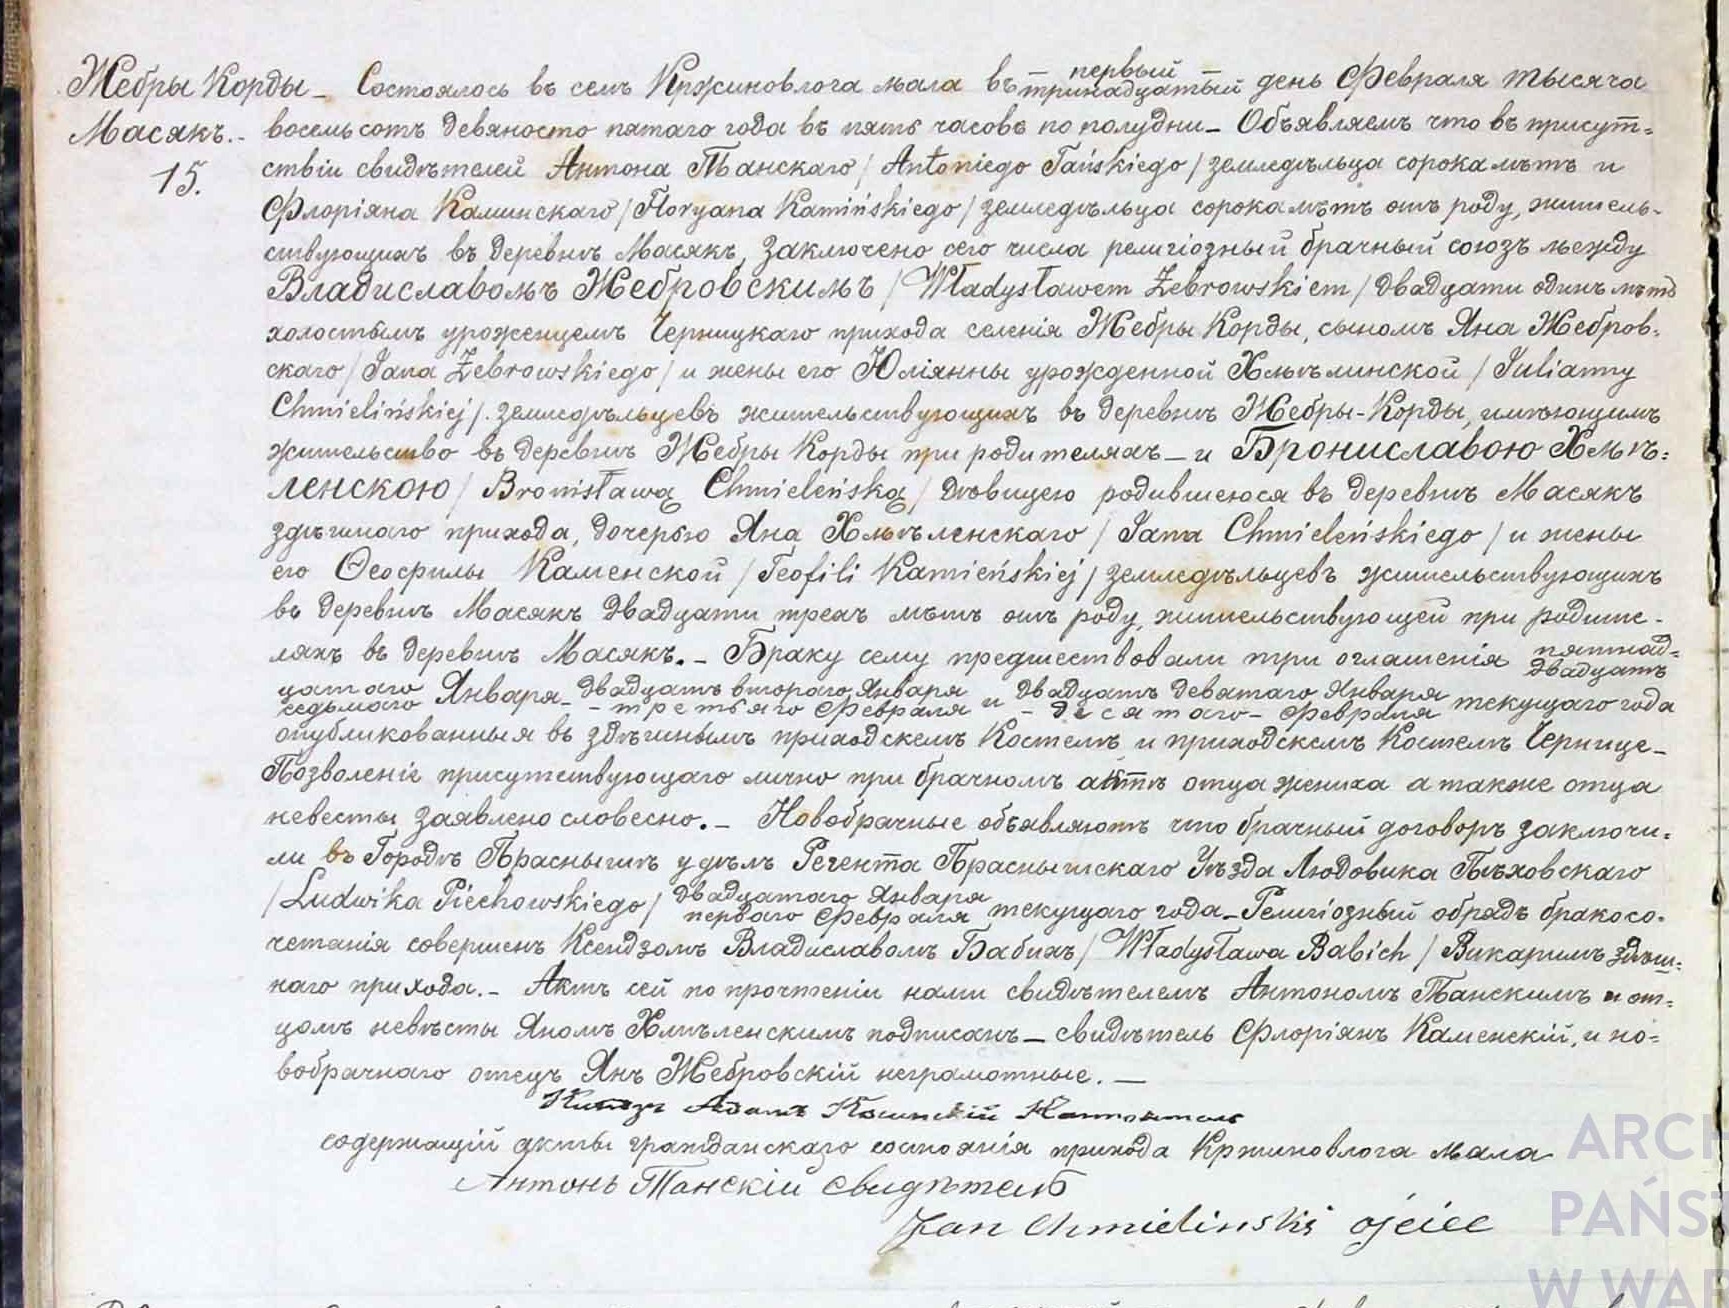 Жебры Корды
Масякъ.
15.
Состоялось въ селѣ Кржиновлога мала въ первый
тринадцатый день Февраля тысяча
восемьсотъ девяносто пятаго года въ пять часовъ по полудни – Объявляемъ что въ присут=
ствіи свидѣтелей Антона Танскаго / Antoniego Tańskiego / земледѣльца сорока лѣтъ и
Флоріяна Каминскаго / Floryana Kamińskiego / земледѣльца сорока лѣтъ отъ роду, житель-
ствующихъ въ деревнѣ Масякъ, заключено сего числа религіозный брачный союзъ между
Владиславомъ Жебровскимъ / Władysławem Żebrowskiem / двадцати одинъ лѣтъ
холостымъ уроженцемъ Черницкаго прихода селенія Жебры Корды, сыномъ Яна Жебров-
скаго / Jana Żebrowskiego / и жены его Юліянны урожденной Хмѣлинской / Julianny
Chmielińskiej /. земледѣльцевъ жительствующихъ въ деревнѣ Жебры-Корды, имѣющимъ
жительство въ деревнѣ Жебры Корды при родителяхъ – и Брониславою Хмѣ=
ленскою / Bronisławą Chmieleńską / дѣвицею родившеюся въ деревнѣ Масякъ
здѣшнаго прихода, дочерью Яна Хмѣленскаго / Jana Chmieleńskiego / и жены
его Ѳеофилы Каменской / Teofili Kamieńskiej / земледѣльцевъ жительствующихъ
въ деревнѣ Масякъ двадцати трехъ лѣтъ отъ роду, жительствующей при родите-
ляхъ въ деревнѣ Масякъ. – Браку сему предшествовали три оглашенія пятнад=
двадцать
цатаго Января – двадцать втораго Января и двадцать девятаго Января текущаго года
седьмаго – третьяго Февраля – десятаго – Февраля
опубликованныя въ здѣшнымъ приходскемъ Костелѣ и приходскемъ Костелѣ Чернице –
Позволеніе присутствующаго лично при брачномъ актѣ отца жениха а также отца
невесты заявлено словесно. – Новобрачные объявляютъ что брачный договоръ заключи-
ли въ Городѣ Праснышѣ у дѣлъ Регента Праснышскаго Уѣзда Людовика Пѣховскаго
/ Ludwika Piechowskiego / двадцатаго Января
перваго Февраля текущаго года – Религіозный обрядъ бракосо-
четанія совершенъ Ксендзомъ Владиславомъ Бабихъ / Władysława Babich / Викаримъ здѣш-
наго прихода. – Актъ сей по прочтеніи нами свидѣтелемъ Антономъ Танскимъ и от=
цомъ невѣсты Яномъ Хмѣленскимъ подписанъ – свидѣтель Флоріянъ Каменскій, и но=
вобрачнаго отецъ Янъ Жебровскій неграмотные. –
Ксендзъ Адамъ
содержащій акты гражданскаго состоянія прихода Кржиновлога мала
Антонь Танскій свидѣтель
Jan Chmielinski ojciec
ARCH
PAŃST
W WAR